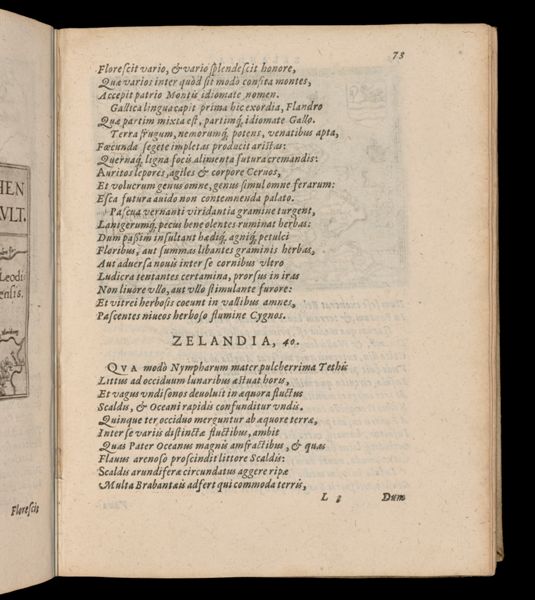 HEN
VLT.
Leodi
ensis.
Florescit
73
Florescit vario, & vario splendescit honore,
Quæ varios inter quòd sit modò consita montes,
Accepit patrio Montis idiomate nomen.
Gallica lingua capit prima hic exordia, Flandro
Quæ partim mixta est, partimq́; idiomate Gallo.
Terra frugum, nemorumq́; potens, venatibus apta,
Fœcunda segete impletas producit aristas:
Quernaq́; ligna focis alimenta futura cremandis:
Auritos lepores, agiles & corpore Ceruos,
Et volucrum genus omne, genus simul omne ferarum:
Esca futura auido non contemnenda palato.
Pascua vernanti viridantia gramine turgent,
Lanigerumq́; pecus bene olentes ruminat herbas:
Dum paßim insultant hædiq́; agniq́; petulci
Floribus, aut summas libantes graminis herbas,
Aut aduersa nouis inter se cornibus vltro
Ludicra tentantes certamina, prorsus in iras
Non liuore vllo, aut vllo stimulante furore:
Et vitrei herbosis coeunt in vallibus amnes,
Pascentes niueos herboso flumine Cygnos.
ZELANDIA, 40.
QVA modò Nympharum mater pulcherrima Tethis
Littus ad occiduum lunaribus æstuat horis,
Et vagus vndisonos deuoluit in æquora fluctus
Scaldis, & Oceani rapidis confunditur vndis.
Quinque ter occiduo merguntur ab æquore terræ,
Inter se variis distinctæ fluctibus, ambit
Quas Pater Oceanus magnis amfractibus, & quas
Flauus arenoso proscindit littore Scaldis:
Scaldis arundiferæ circundatus aggere ripæ
Multa Brabantais adfert qui commoda terris,
L 3 Dum